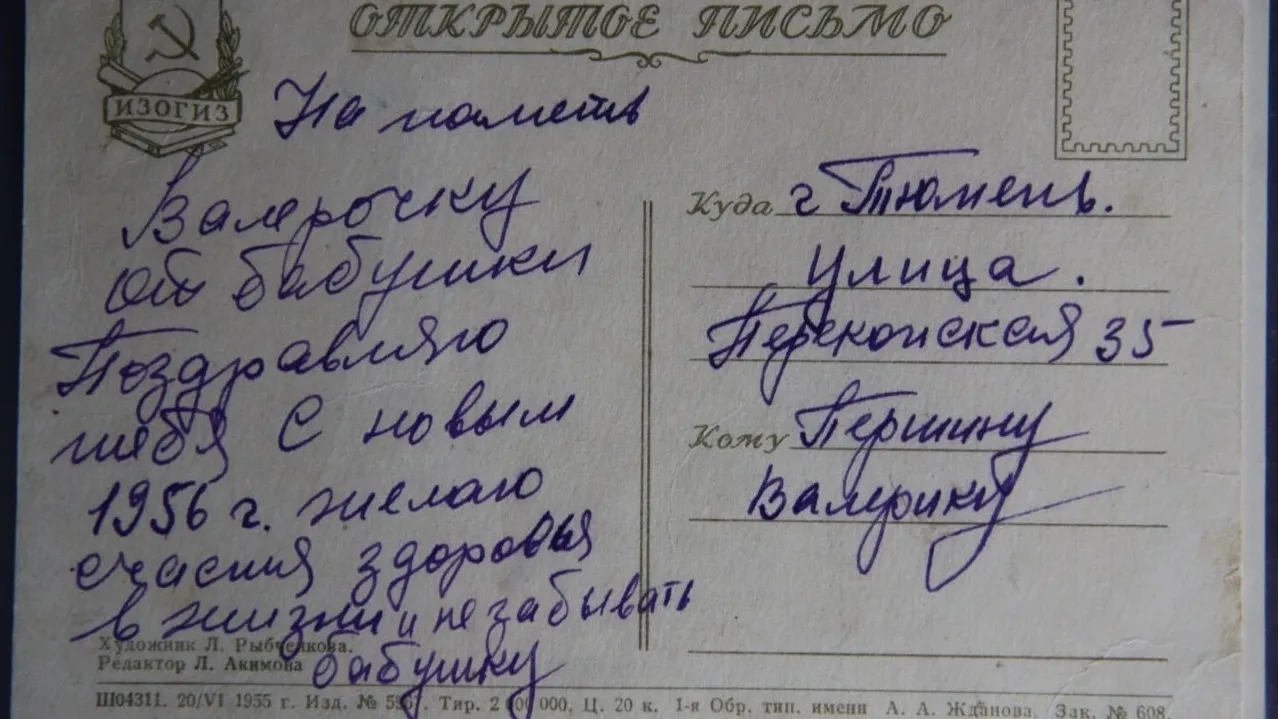 ОТКРЫТОЕ ПИСЬМО
ИЗОГИЗ
На паметь
Валерочку
от бабушки
Поздравляю
тебя С новым
1956 г. желаю
счасия здоровья
в жизни и не забывать
бабушку
Куда г Тюмень.
улица.
Перекопская 35
Кому Першину
Валерику
Художник Л. Рыбченкова.
Редактор Л. Акимова
Ш04311. 20/VI 1955 г. Изд. № Тир. Ц. 20 к. 1-я Обр. тип. имени А. А. Жданова. Зак. № 608.